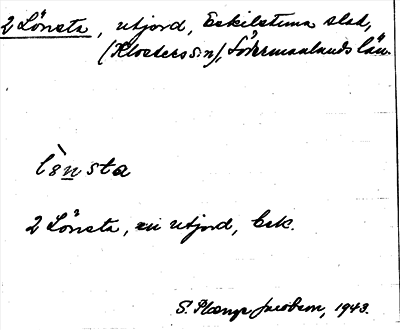 2 Lönsta, utjord, Eskilstuna stad,
(Klosters sn), Södermanlands län.
lö̀nsta
2 Lönsta, en utjord, Esk.
S. Plænge Jacobson, 1943.